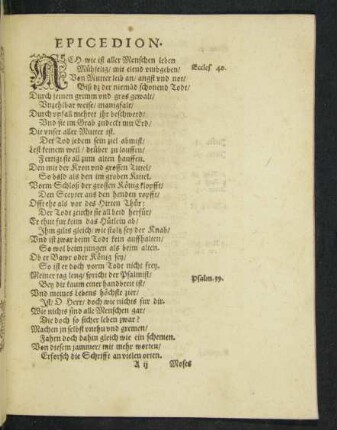 EPICEDION.
ACH wie ist aller Menschen leben
Mühselig/ mit elend umbgeben/
Eccles 40.
Von Mutter leib an/ angst und not/
Biß dz der niemād schonend Todt/
Durch seinen grimm und gros gewalt/
Unzehlbar weise/ manigfalt/
Durch unfall mehret ihr beschwerd/
Und sie im Grab zudeckt mit Erd/
Die unser aller Mutter ist.
Der Tod jedem sein ziel abmist/
Lest keinem woll/ drüber zu lauffen/
Fertigt sie all zum alten hauffen.
Den mit der Kron und grossen Tittel/
So bald als den im groben Kittel.
Vorm Schloß der grossen König klopfft/
Den Scepter aus den henden ropfft/
Offt ehe als vor des Hirten Thür:
Der Todt zeucht sie all herd herfür/
Er thut für kein das Hütlein ab/
Ihm gilts gleich/ wie stoltz sey der Knab/
Und ist zwar beim Todt kein auffhalten/
So wol beim jungen als beim alten.
Ob er Bawr oder König sey/
So ist er doch vorm Todt nicht frey.
Meiner tag leng/ spricht der Psalmist/
Psalm. 39.
Bey dir kaum einer handbreit ist/
Und meines Lebens höchste zier/
Ist/ O Herr/ doch wie nichts für dir.
Wie nichts sind alle Menschen gar/
Die doch so sicher leben zwar?
Machen zu selbst unruhu und gremen/
Fahrn doch dahin gleich wie ein schemen.
Von diesem jammer/ mit mehr worten/
Erforsch die Schrifft an vielen orten.
A ij
Moses